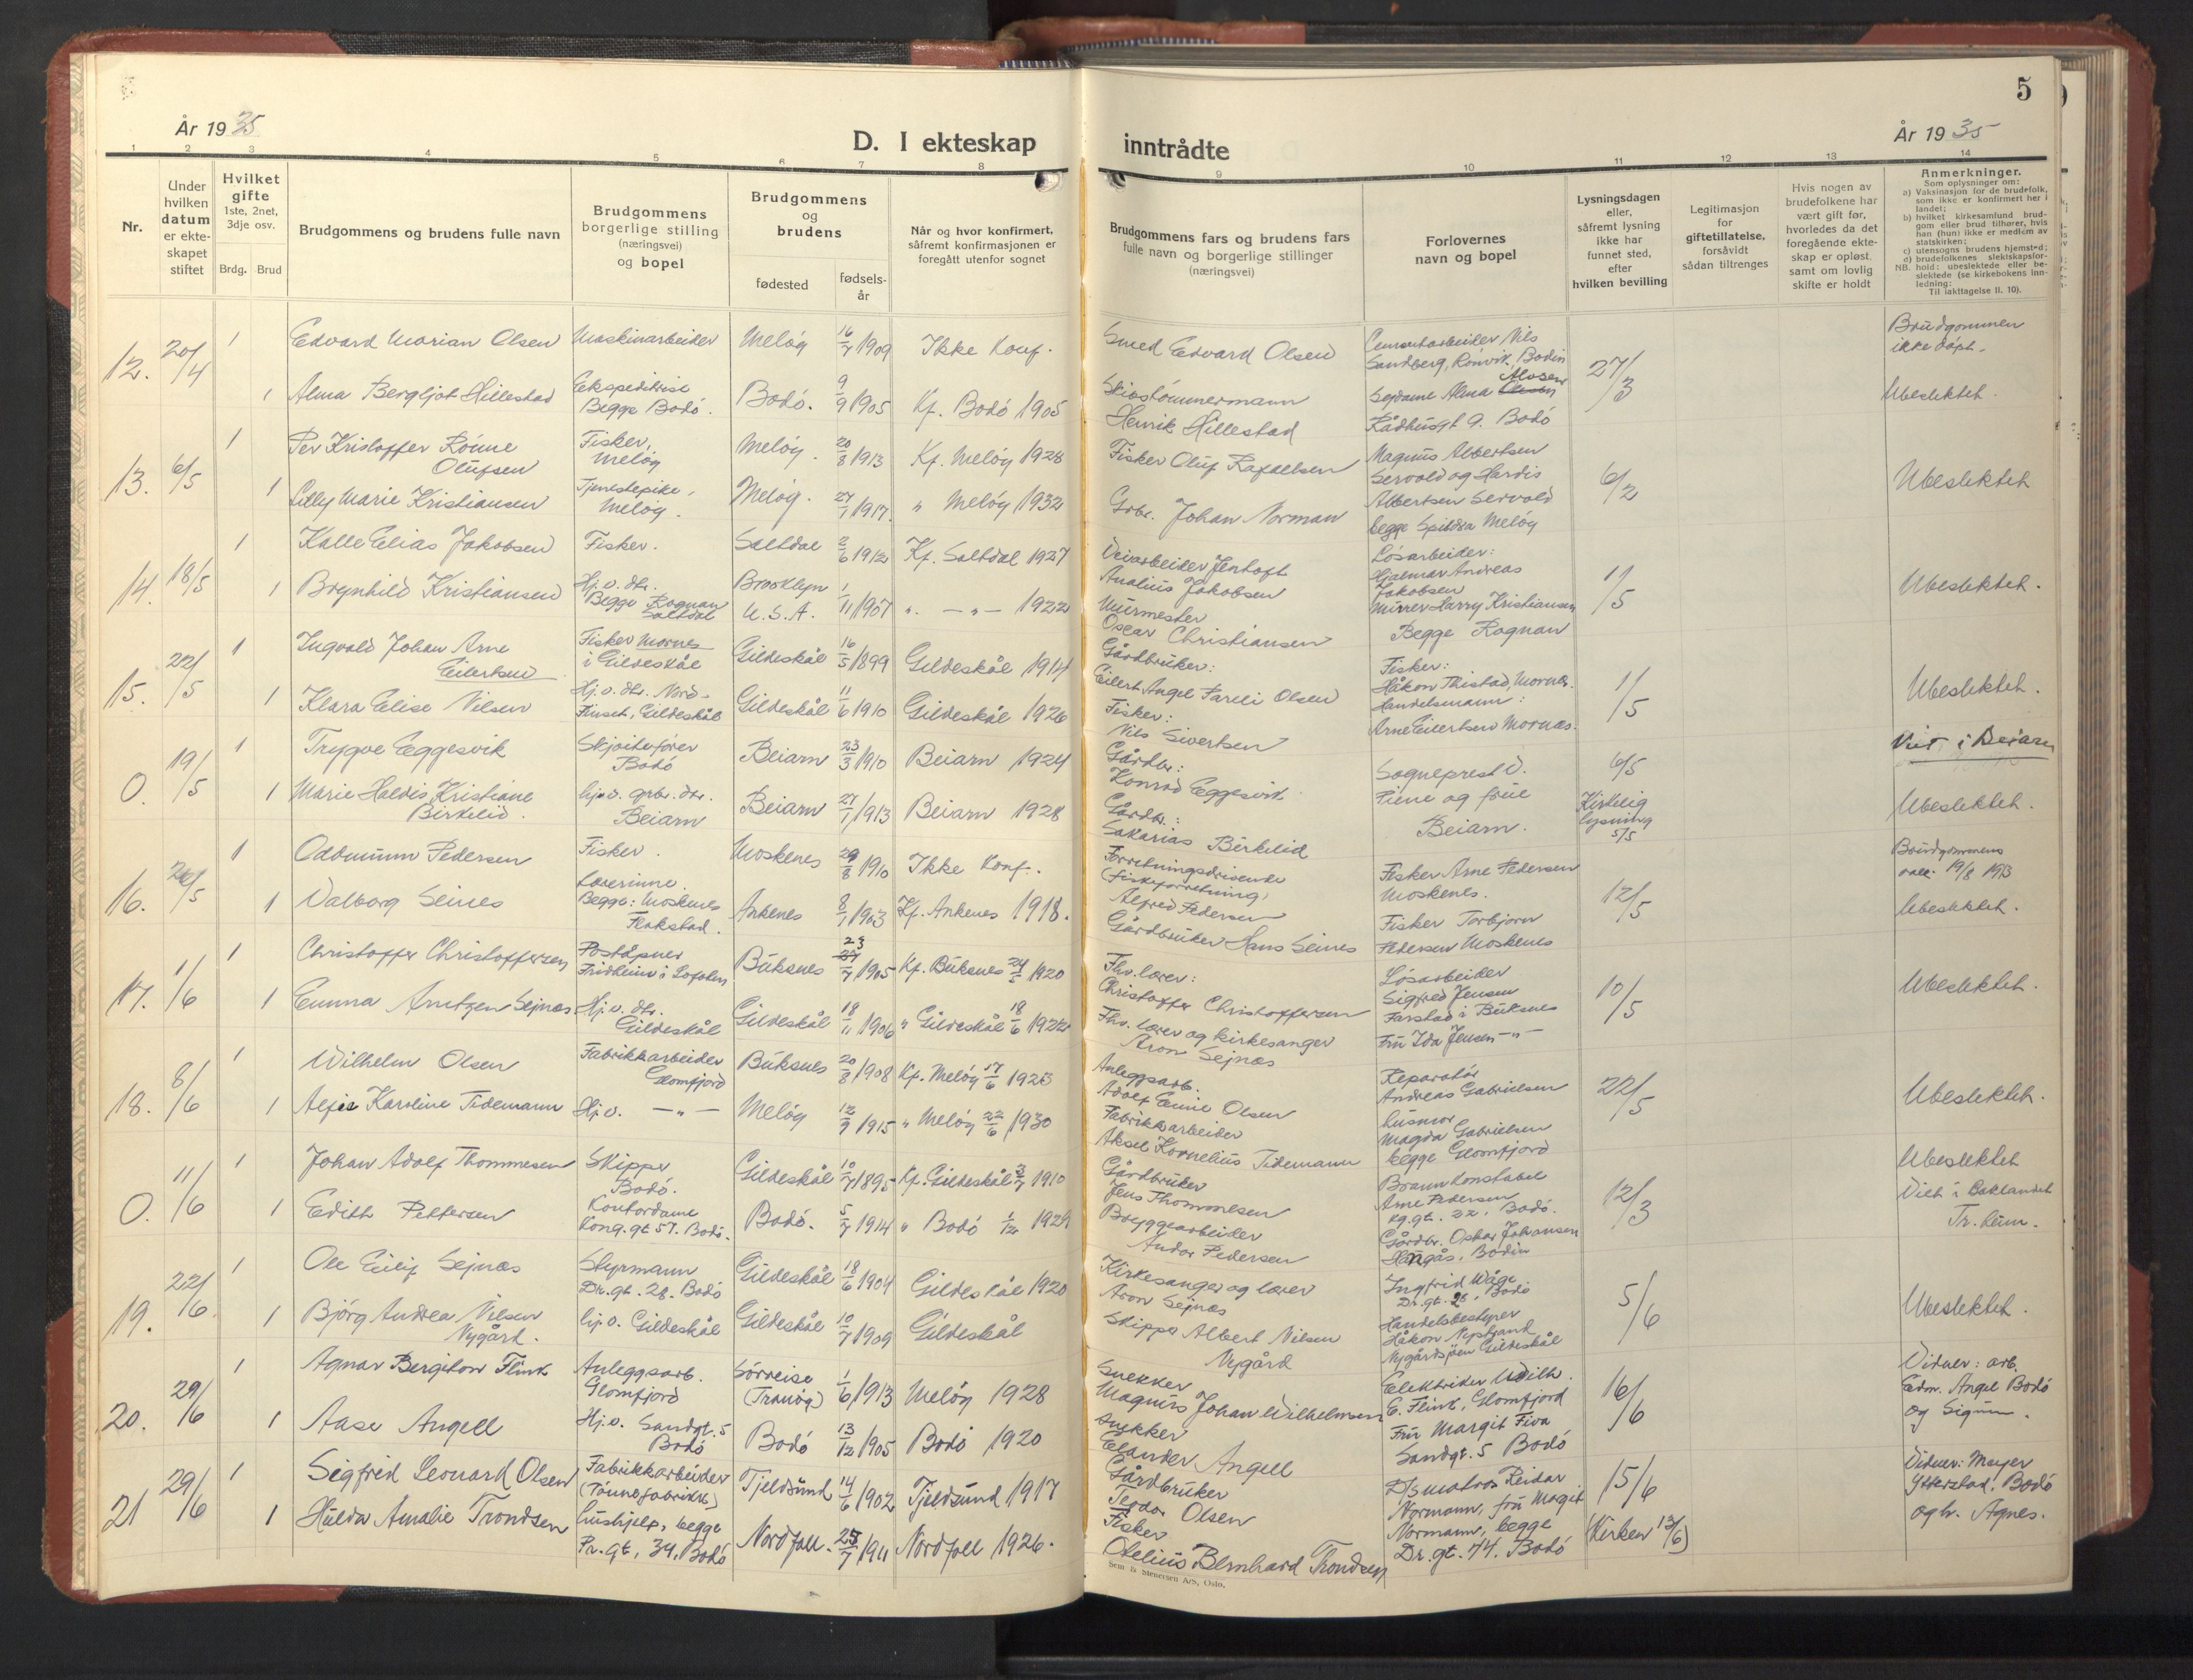 5
År 1935
År 1935
D. I ekteskap
inntrådte
1
2
3
4
5
6
7
8
9
10
11
12
13
14
Nr.
Under
hvilken
datum
er ekte-
skapet
stiftet
Hvilket
gifte
1ste, 2net,
3dje osv.
Brdg.
Brud
Brudgommens og brudens fulle navn
Brudgommens
borgerlige stilling
(næringsvei)
og bopel
Brudgommens
og
brudens
fødested
fødsels-
år
Når og hvor konfirmert,
såfremt konfirmasjonen er
foregått utenfor sognet
Brudgommens fars og brudens fars
fulle navn og borgerlige stillinger
(næringsvei)
Forlovernes
navn og bopel
Lysningsdagen
eller,
såfremt lysning
ikke har
funnet sted,
efter
hvilken bevilling
Legitimasjon
for
giftetillatelse,
forsåvidt
sådan tiltrenges
Hvis nogen av
brudefolkene har
vært gift før,
hvorledes da det
foregående ekte-
skap er opløst
samt om lovlig
skifte er holdt
Anmerkninger.
Som oplysninger om:
a) Vaksinasjon for de brudefolk,
som ikke er konfirmert her i
landet;
b) hvilket kirkesamfund brud-
gom eller brud tilhører, hvis
han (hun) ikke er medlem av
statskirken;
c) utensogns brudens hjemsted;
d) brudefolkenes slektskapsfor-
NB. hold: ubeslektede eller be-
slektede (se kirkebokens inn-
ledning:
Til iakttagelse II. 10).
12. 20/4 1 Edvard Marian Olsen Maskinarbeider Meløy 16/7 1909 Ikke Konf. Smed Edvard Olsen Cementarbeider Nils
Sandberg, Rønvik, Bodin 27/3 Brudgommen
ikke døpt.
1 Alma Bergljot Hillestad Ekspeditrise
Begge Bodø. Bodø. 9/9 1905 Kf. Bodø 1905 Skibstømmermann
Henrik Hillestad Sydame Alma Mosen
Rådhusgt 9. Bodø Ubeslektet.
13. 6/5 1 Per Kristoffer Rønne
Olufsen Fisker,
Meløy Meløy. 20/8 1913 Kf. Meløy 1928 Fisker Oluf Rafaelsen Magnus Albertsen
Servold og Hardis 6/2 Ubeslektet
1 Lilly Marie Kristiansen Tjenestepike,
Meløy. Meløy. 27/1 1917. " Meløy 1932 Grbr. Johan Norman Albertsen Servold
begge Spildra Meløy
14. 18/5 1 Kalle Elias Jakobsen Fisker. Saltdal 2/6 1912 Kf. Saltdal 1927 Veiarbeider Jentoft
Analius Jakobsen Løsarbeider:
Hjalmar Andreas
Jakobsen 1/5 Ubeslektet.
1 Brynhild Kristiansen Hj.v. dtr.
Begge Rognan
Saltdal Brooklyn
U.S.A. 1/11 1907 " — " — 1922 Murmester
Oscar Christiansen Murer Harry Kristiansen
Begge Rognan
15. 22/5 1 Ingvald Johan Arne
Eilertsen Fisker Mornes
i Gildeskål Gildeskål 16/5 1899 Gildeskål 1914 Gårdbruker:
Eilert Angel Pareli Olsen Fisker:
Håkon Thistad, Mornes. 1/5 Ubeslektet.
1 Klara Elise Nilsen Hj.v. dtr. Nord-
Finset, Gildeskål Gildeskål 11/6 1910 Gildeskål 1926 Fisker:
Nils Sivertsen Handelsmann:
Arne Eilertsen Mornæs.
0. 19/5 1 Trygve Eggesvik Skjøitefører
Bodø Beiarn 23/3 1910 Beiarn 1924 Gårdbr:
Konrad Eggesvik Sogneprest O.
Piene og frue
Beiarn. 6/5
Kirkelig
lysning
5/5 Viet i Beiarn
1 Marie Haldis Kristiane
Birkelid. hj.v. grbr. dtr.
Beiarn Beiarn 27/1 1913 Beiarn 1928 Gårdbr.:
Sakarias Birkelid Ubeslektet.
16. 26/5 1 Oddmunn Pedersen Fisker. Moskenes 29/8 1910 Ikke Konf. Forretningsdrivende
(fiskforretning)
Alfred Pedersen Fisker Arne Pedersen
Moskenes. 12/5 Brudgommens
vakc. 19/8 1913
1 Valborg Seines Lærerinne.
Begge: Moskenes
Flakstad. Ankenes 8/1 1903 Kf. Ankenes 1918. Gårdbruker Hans Seines Fisker Torbjørn
Pedersen Moskenes Ubeslektet.
17. 1/6 1 Christoffer Christoffersen Poståpner
Fridheim i Lofoten Buksnes 23/7 1905 Kf. Buksnes 24/5 1920 Fhv. lærer:
Christoffer Christoffersen Løsarbeider
Sigfred Jensen
Farstad i Buksnes 10/5 Ubeslektet.
1 Emma Arntzen Sejnæs. Hj.v. dtr.
Gildeskål Gildeskål 18/11 1906 " Gildeskål 18/6 1922 Fhv. lærer og kirkesanger
Aron Sejnæs Fru Ida Jensen — " —
18. 8/6 1 Wilhelm Olsen Fabrikkarbeider
Glomfjord Buksnes 20/8 1908 Kf. Meløy 17/6 1923 Anleggsarb.
Adolf Emie Olsen Reparatør
Andreas Gabrielsen 22/5 Ubeslektet.
1 Alfis Karoline Tidemann Hj.v. — " — Meløy 12/9 1915 " Meløy 22/6 1930 Fabrikkarbeider
Aksel Kornelius Tidemann husmor
Magda Gabrielsen
begge Glomfjord
0. 11/6 1 Johan Adolf Thommesen Skipper
Bodø. Gildeskål 10/7 1895 Kf. Gildeskål 3/7 1910 Gårdbruker
Jens Thommesen Brannkonstabel
Arne Pedersen
Kg.gt. 22, Bodø. 12/3 Ubeslektet
Viet i Baklandet
Tr.heim.
1 Edith Pettersen Kontordame
Kong.gt 57. Bodø. Bodø. 5/7 1914 " Bodø 1/12 1929 Bryggearbeider
Andor Pedersen Gårdbr. Oskar Johansen
Hangås, Bodin
19. 22/6 1 Ole Eilif Sejnæs Styrmann
Dr.gt. 28. Bodø Gildeskål 18/6 1904 Gildeskål 1920 Kirkesanger og lærer
Aron Sejnæs Ingfrid Wåge
Dr.gt. 28, Bodø 5/6 Ubeslektet.
1 Bjørg Andrea Nilsen
Nygård. hj.v. Gildeskål Gildeskål 10/7 1909 Gildeskål Skipper Albert Nilsen
Nygård Handelsbestyrer
Håkon Nystrand
Nygårdsjøen Gildeskål
20. 29/6 1 Agnar Bergiton Flink Anleggsarb.
Glomfjord Sørreise
(Tranøy) 1/6 1913 Meløy 1928 Snekker
Magnus Johan Wilhelmsen Elektriker Wilh.
E. Flink, Glomfjord 16/6 Vidner: arb.
Edm. Angel Bodø
og Signe.
1 Aase Angell Hj.v. Sandgt. 5
Bodø Bodø 13/12 1905 Bodø 1920 Snekker
Elander Angell Fru Margit Fiva
Sandgt. 5 Bodø
21 29/6 1 Sigfred Leonard Olsen Fabrikkarbeider
(Tønnefabrikk) Tjeldsund 14/6 1902 Tjeldsund 1917 Gårdbruker
Teodor Olsen D/smatros Reidar
Normann, fru Magit 15/6 Vidner: Meyer
Ytterstad, Bodø
og h. Agnes.
1 Hulda Amalie Trondsen hushjelp, begge
Pr.gt. 34, Bodø Nordfoll. 25/7 1911 Nordfoll 1926. Fisker
Otelius Bernhard Trondsen Normann, begge
Dr.gt. 74. Bodø (Kirken 13/6)
Sem & Stenersen A/S, Oslo.